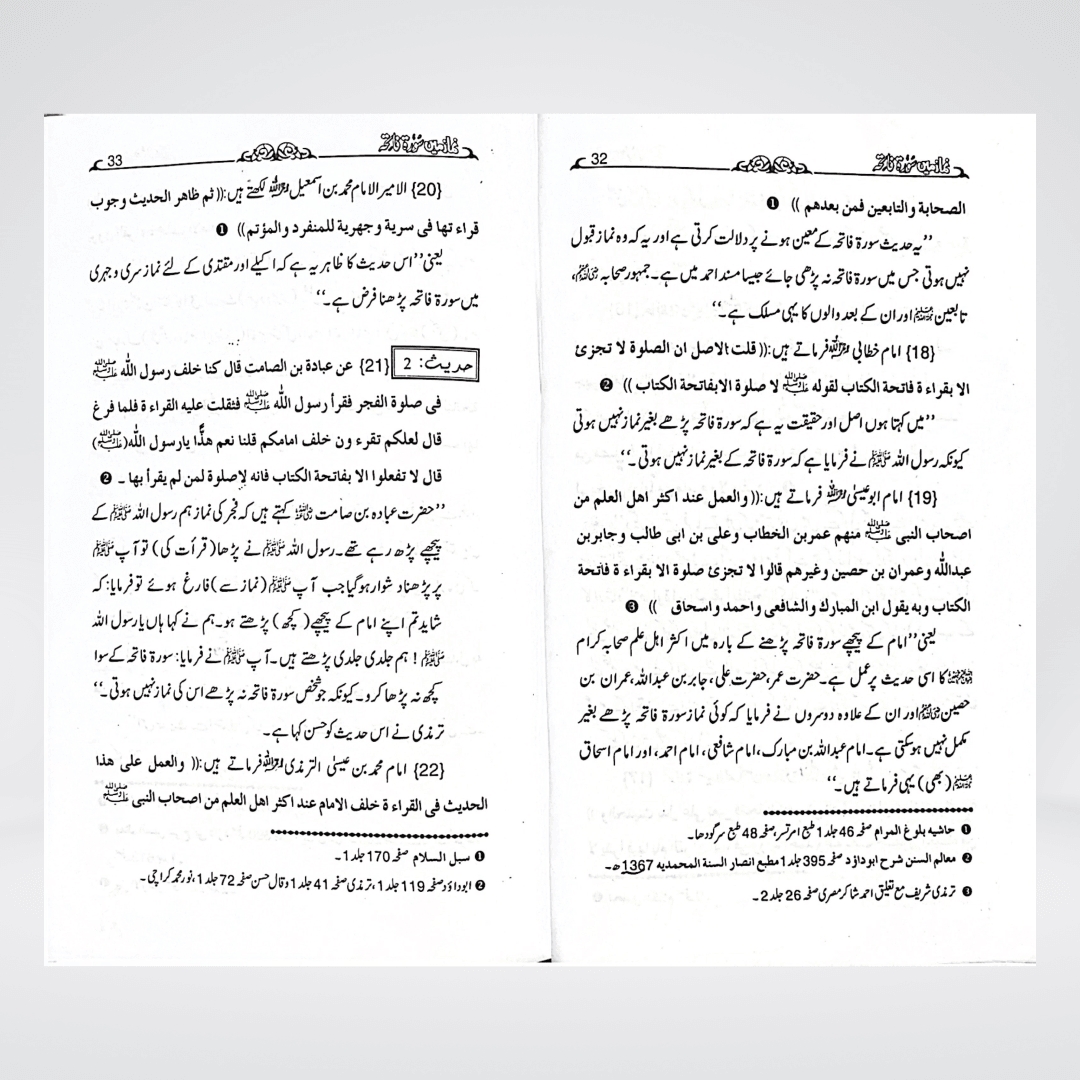 نماز میں سورۃ فاتحہ
32
الصحابة والتابعين فمن بعدهم )) ❶
’’یہ حدیث سورۃ فاتحہ کے معین ہونے پر دلالت کرتی ہے اور یہ کہ وہ نماز قبول
نہیں ہوتی جس میں سورۃ فاتحہ نہ پڑھی جائے جیسا مسند احمد میں ہے۔ جمہور صحابہ رضی اللہ عنہم،
تابعین رحمہم اللہ اور ان کے بعد والوں کا یہی مسلک ہے۔‘‘
{18} امام خطابی رحمہ اللہ فرماتے ہیں:(( قلت الاصل ان الصلوة لا تجزئ
الا بقراء ة فاتحة الكتاب لقوله ﷺ لا صلوة الابفاتحة الكتاب )) ❷
’’میں کہتا ہوں اصل اور حقیقت یہ ہے کہ سورۃ فاتحہ پڑھے بغیر نماز نہیں ہوتی
کیونکہ رسول اللہ ﷺ نے فرمایا ہے کہ سورۃ فاتحہ کے بغیر نماز نہیں ہوتی ۔‘‘
{19} امام ابو عیسیٰ رحمہ اللہ فرماتے ہیں:(( والعمل عند اكثر اهل العلم من
اصحاب النبى ﷺ منهم عمر بن الخطاب وعلى بن ابى طالب وجابر بن
عبدالله وعمران بن حصين وغيرهم قالوا لا تجزئ صلوة الا بقراء ة فاتحة
الكتاب وبه يقول ابن المبارك والشافعى واحمد واسحاق )) ❸
یعنی’’امام کے پیچھے سورۃ فاتحہ پڑھنے کے بارہ میں اکثر اہل علم صحابہ کرام
رضی اللہ عنہم کا اسی حدیث پر عمل ہے۔ حضرت عمر، حضرت علی، جابر بن عبداللہ، عمران بن
حصین رضی اللہ عنہم اور ان کے علاوہ دوسروں نے فرمایا کہ کوئی نماز سورۃ فاتحہ پڑھے بغیر
مکمل نہیں ہو سکتی ہے۔ امام عبداللہ بن مبارک، امام شافعی، امام احمد، اور امام اسحاق
رحمہم اللہ (بھی) یہی فرماتے ہیں۔‘‘
❶ حاشیہ بلوغ المرام صفحہ 46 جلد 1 طبع امرتسر، صفحہ 48 طبع سرگودھا۔
❷ معالم السنن شرح ابوداؤد صفحہ 395 جلد 1 مطبع انصار السنة المحمديه 1367ھ۔
❸ ترمذی شریف مع تعلیق احمد شاکر مصری صفحہ 26 جلد 2۔
نماز میں سورۃ فاتحہ
33
{20} الامیر الامام محمد بن اسمعیل رحمہ اللہ لکھتے ہیں:(( ثم ظاهر الحديث وجوب
قراء تها فى سرية وجهرية للمنفرد والمؤتم)) ❶
یعنی’’اس حدیث کا ظاہر یہ ہے کہ اکیلے اور مقتدی کے لئے نماز سری و جہری
میں سورۃ فاتحہ پڑھنا فرض ہے۔‘‘
حدیث: 2 {21} عن عبادة بن الصامت قال كنا خلف رسول الله ﷺ
فى صلوة الفجر فقرأ رسول الله ﷺ فثقلت عليه القراء ة فلما فرغ
قال لعلكم تقرء ون خلف امامكم قلنا نعم هذًّا يارسول الله(ﷺ)
قال لا تفعلوا الا بفاتحة الكتاب فانه لاصلوة لمن لم يقرأ بها ۔ ❷
’’حضرت عبادہ بن صامت رضی اللہ عنہ کہتے ہیں کہ فجر کی نماز ہم رسول اللہ ﷺ کے
پیچھے پڑھ رہے تھے۔ رسول اللہ ﷺ نے پڑھا (قرأت کی) تو آپ ﷺ
پر پڑھنا دشوار ہو گیا جب آپ ﷺ (نماز سے) فارغ ہوئے تو فرمایا: کہ
شاید تم اپنے امام کے پیچھے (کچھ) پڑھتے ہو۔ ہم نے کہا ہاں یا رسول اللہ
ﷺ! ہم جلدی جلدی پڑھتے ہیں۔ آپ ﷺ نے فرمایا: سورۃ فاتحہ کے سوا
کچھ نہ پڑھا کرو۔ کیونکہ جو شخص سورۃ فاتحہ نہ پڑھے اس کی نماز نہیں ہوتی۔‘‘
ترمذی نے اس حدیث کو حسن کہا ہے۔
{22} امام محمد بن عیسیٰ الترمذی رحمہ اللہ فرماتے ہیں:(( والعمل على هذا
الحديث فى القراء ة خلف الامام عند اكثر اهل العلم من اصحاب النبى ﷺ
❶ سبل السلام صفحہ 170 جلد 1۔
❷ ابوداؤد صفحہ 119 جلد 1، ترمذی صفحہ 41 جلد 1 وقال حسن صفحہ 72 جلد 1، نور محمد کراچی۔